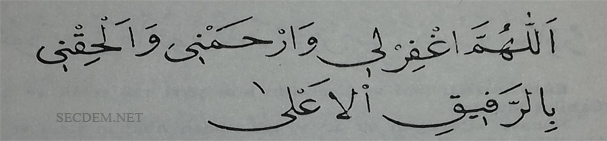 اَللّٰهُمَّ اغْفِرْ لِي وَارْحَمْنِي وَاَلْحِقْنِي
بِالرَّفِيقِ اْلاَعْلٰى
SECDEM.NET